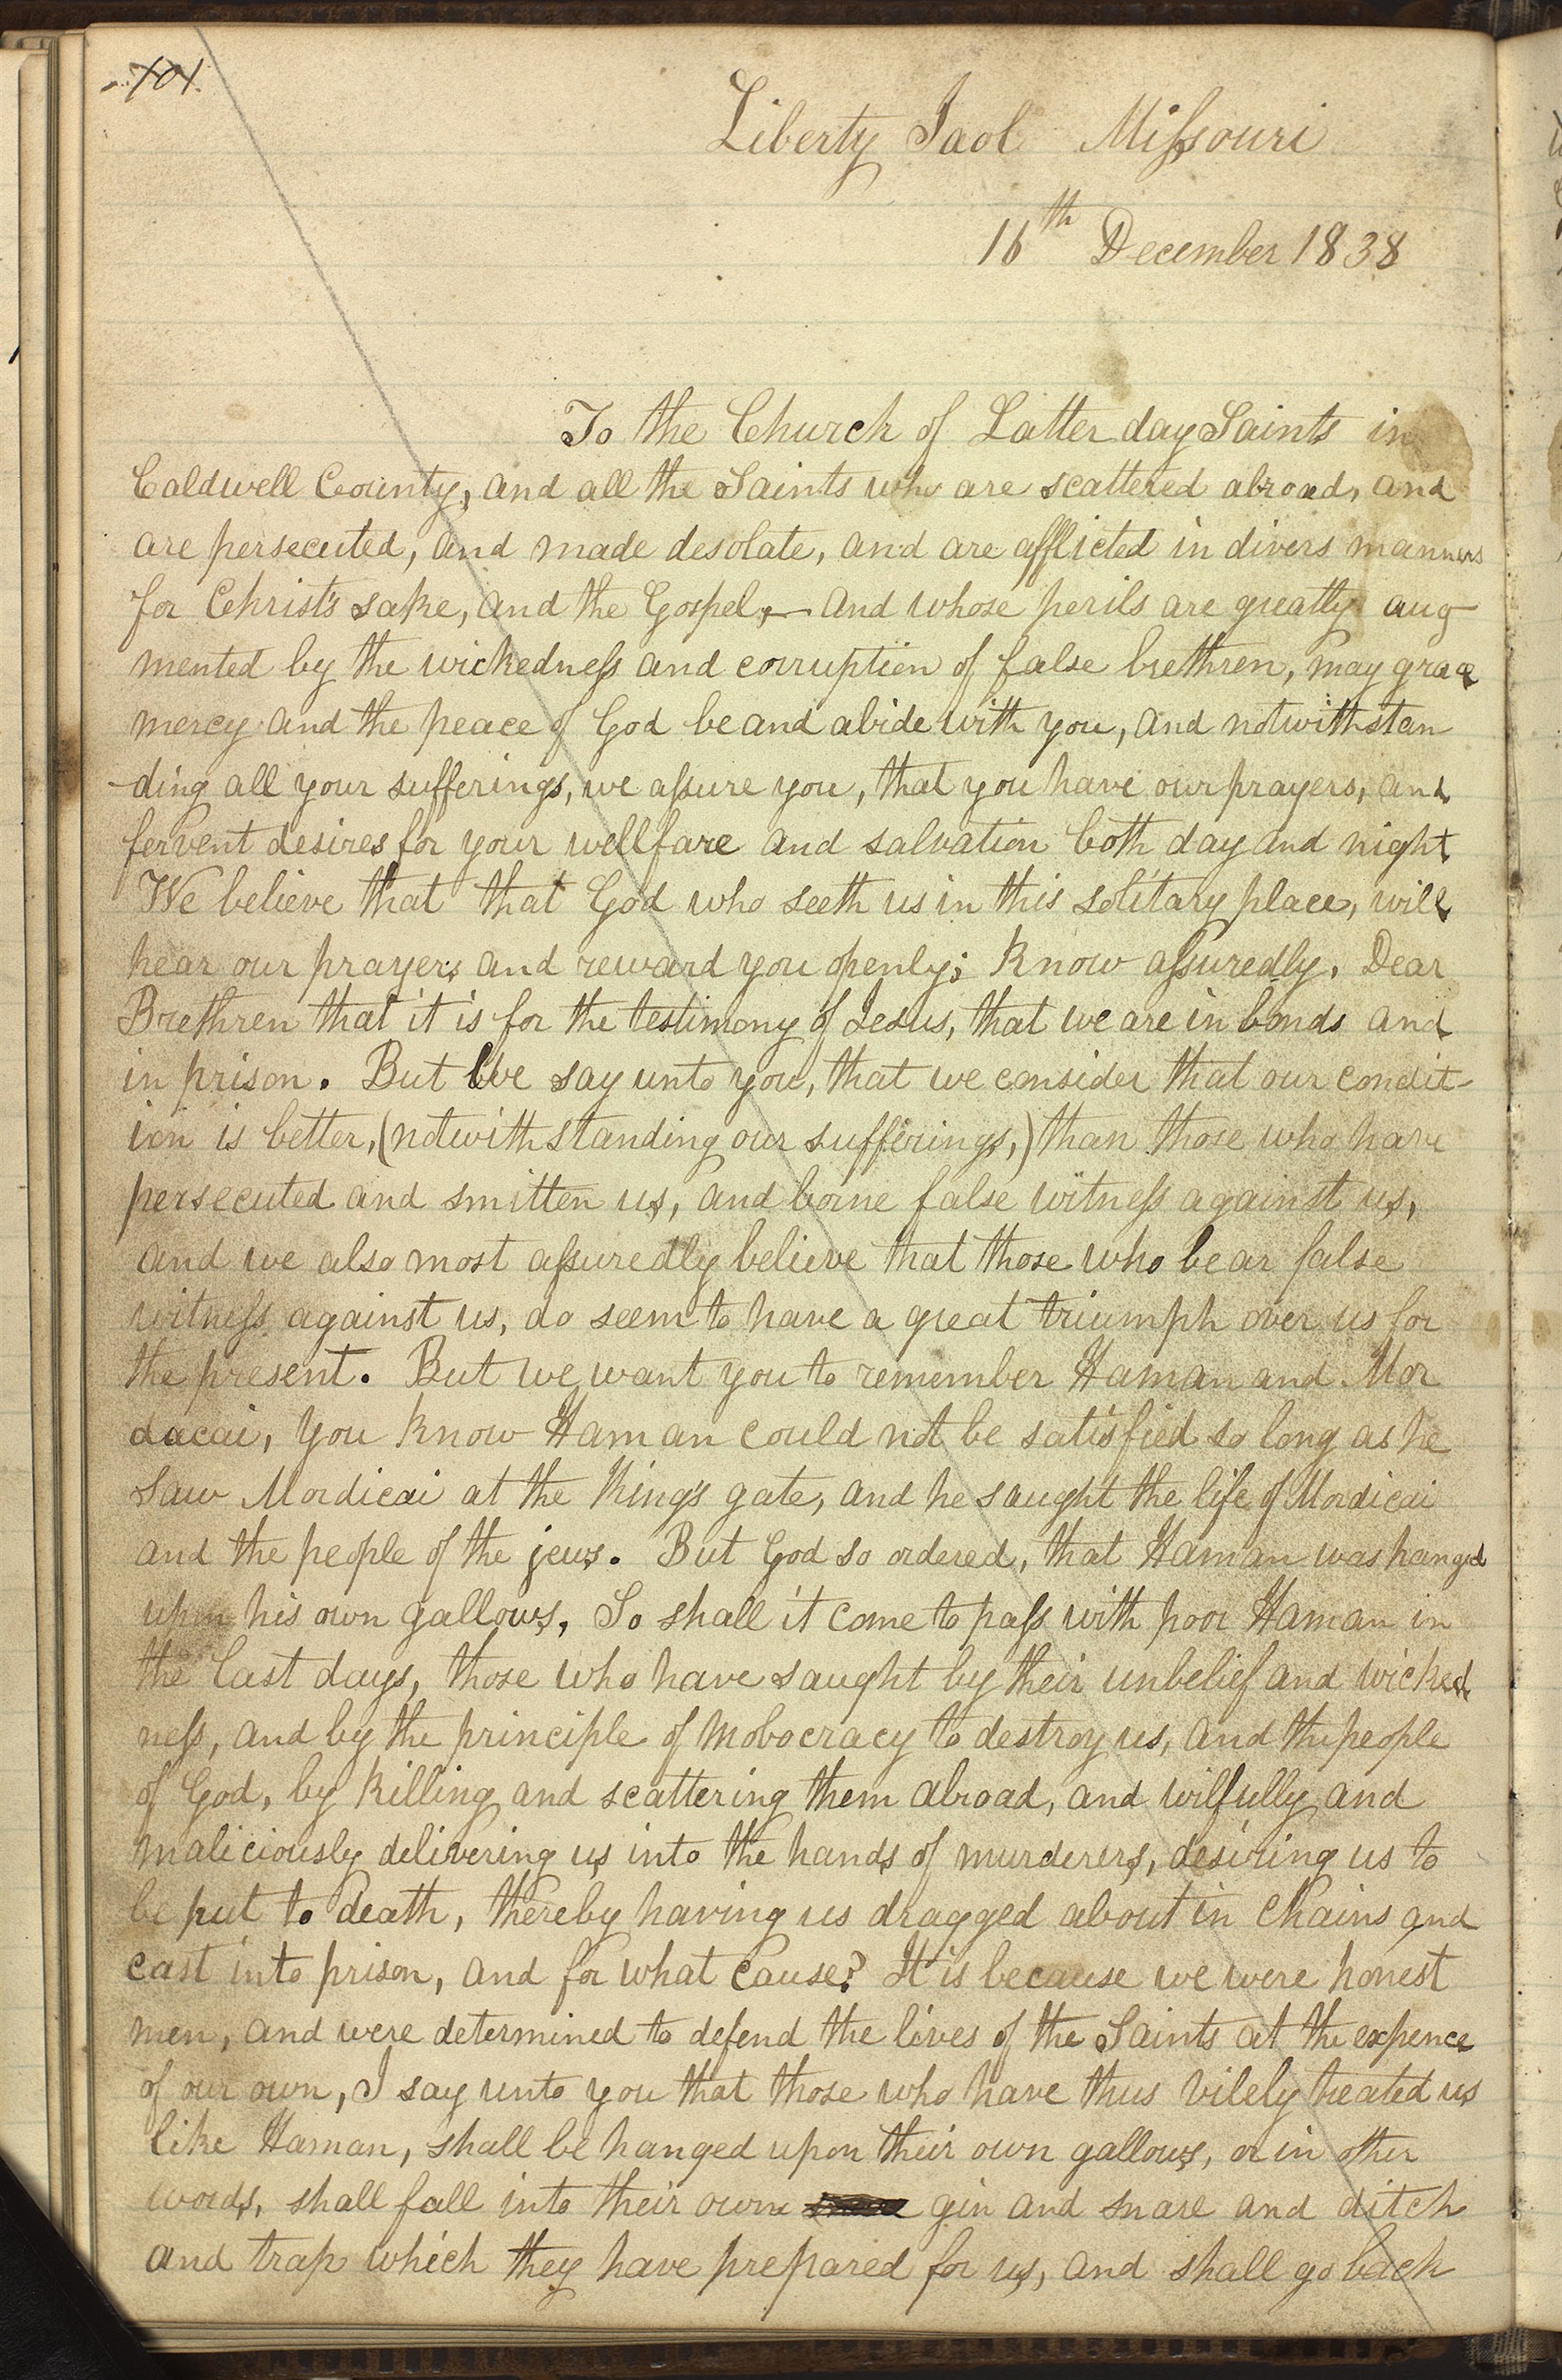 101.
Liberty Jaol Missouri
16th December 1838
To the Church of Latter day Saints in
Caldwell County, and all the Saints who are scattered abroad, and
are persecuted, and made desolate, and are afflicted in divers manners
for Christ's sake, and the Gospel,— and whose perils are greatly aug
mented by the wickedness and corruption of false brethren, may grace
mercy and the peace of God be and abide with you, and notwithstan
-ding all your sufferings, we assure you, that you have our prayers, and
fervent desires for your wellfare and salvation both day and night
We believe that that God who seeth us in this solitary place, will
hear our prayers and reward you openly; Know assuredly, Dear
Brethren that it is for the testimony of Jesus, that we are in bonds and
in prison. But we say unto you, that we consider that our condit-
ion is better, (notwithstanding our sufferings,) than those who have
persecuted and smitten us, and borne false witness against us,
and we also most assuredly believe that those who bear false
witness against us, do seem to have a great triumph over us for
the present. But we want you to remember Haman and Mor
dacai, you know Haman could not be satisfied so long as he
saw Mordicai at the King's gate, and he saught the life of Mordicai
and the people of the jews. But God so ordered, that Haman was hanged
upon his own gallows, So shall it come to pass with poor Haman in
the last days, those who have saught by their unbelief and wicked
ness, and by the principle of mobocracy to destroy us, and the people
of God, by killing and scattering them abroad, and wilfully and
maliciously delivering us into the hands of murderers, desiring us to
be put to death, thereby having us dragged about in chains and
cast into prison, and for what cause? It is because we were honest
men, and were determined to defend the lives of the Saints at the expence
of our own, I say unto you that those who have thus vilely treated us
like Haman, shall be hanged upon their own gallows, or in other
words, shall fall into their own gin and snare and ditch
and trap which they have prepared for us, and shall go back